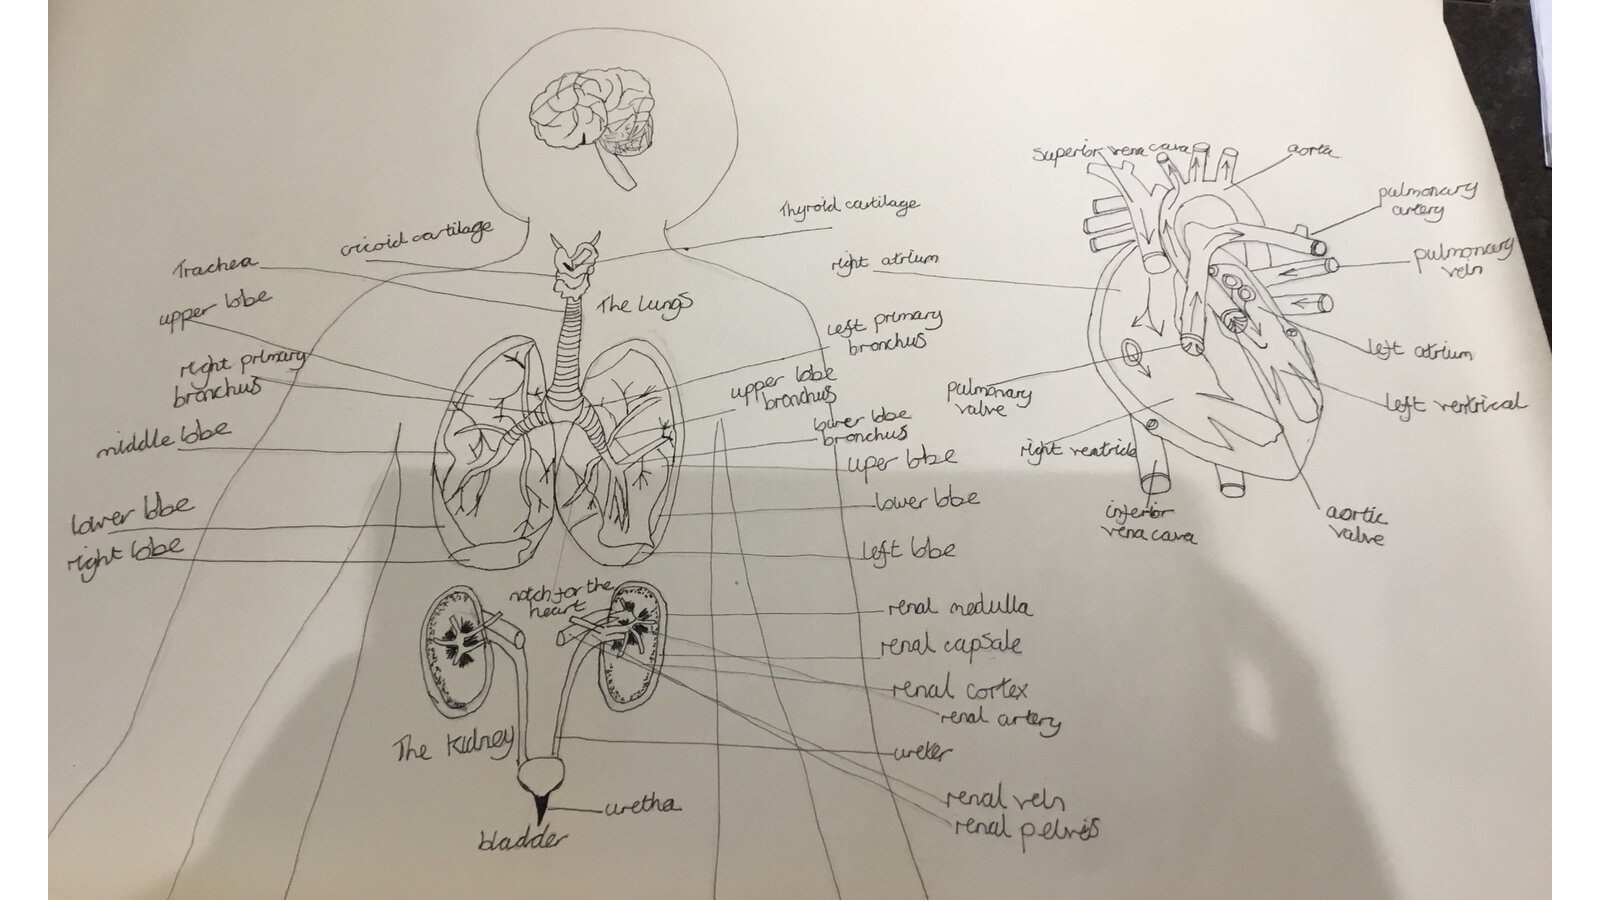 cricoid cartilage
Trachea
upper lobe
right primary
bronchus
middle lobe
lower lobe
right lobe
Thyroid cartilage
The lungs
left primary
bronchus
upper lobe
bronchus
lower lobe
bronchus
uper lobe
lower lobe
left lobe
notch for the
heart
renal medulla
renal capsale
renal cortex
renal artery
ureter
renal vein
renal pelvis
The Kidney
uretha
bladder
superior vena cava
aorta
pulmonary
artery
pulmonary
vein
right atrium
left atrium
left ventrical
pulmonary
valve
right ventricle
inferior
vena cava
aortic
valve